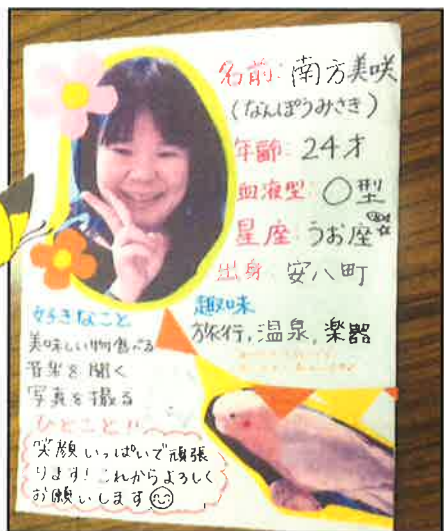 名前:南方美咲
(なんぽうみさき)
年齢:24才
血液型:O型
星座:うお座
出身:安八町
好きなこと
美味しい物食べる
音楽を聞く
写真を撮る
趣味
旅行,温泉,楽器
ひとこと
笑顔いっぱいで頑張
ります!これからよろしく
お願いします